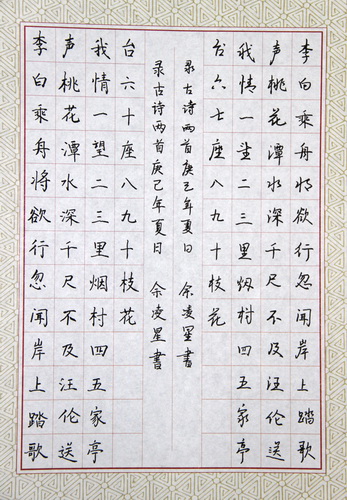 李白乘舟将欲行忽闻岸上踏歌
声桃花潭水深千尺不及汪伦送
我情一望二三里烟村四五家亭
台六七座八九十枝花
录古诗两首庚己年夏日 余凌星書
李白乘舟将欲行忽闻岸上踏歌
声桃花潭水深千尺不及汪伦送
我情一望二三里烟村四五家亭
台六十座八九十枝花
录古诗两首庚己年夏日 余凌星書